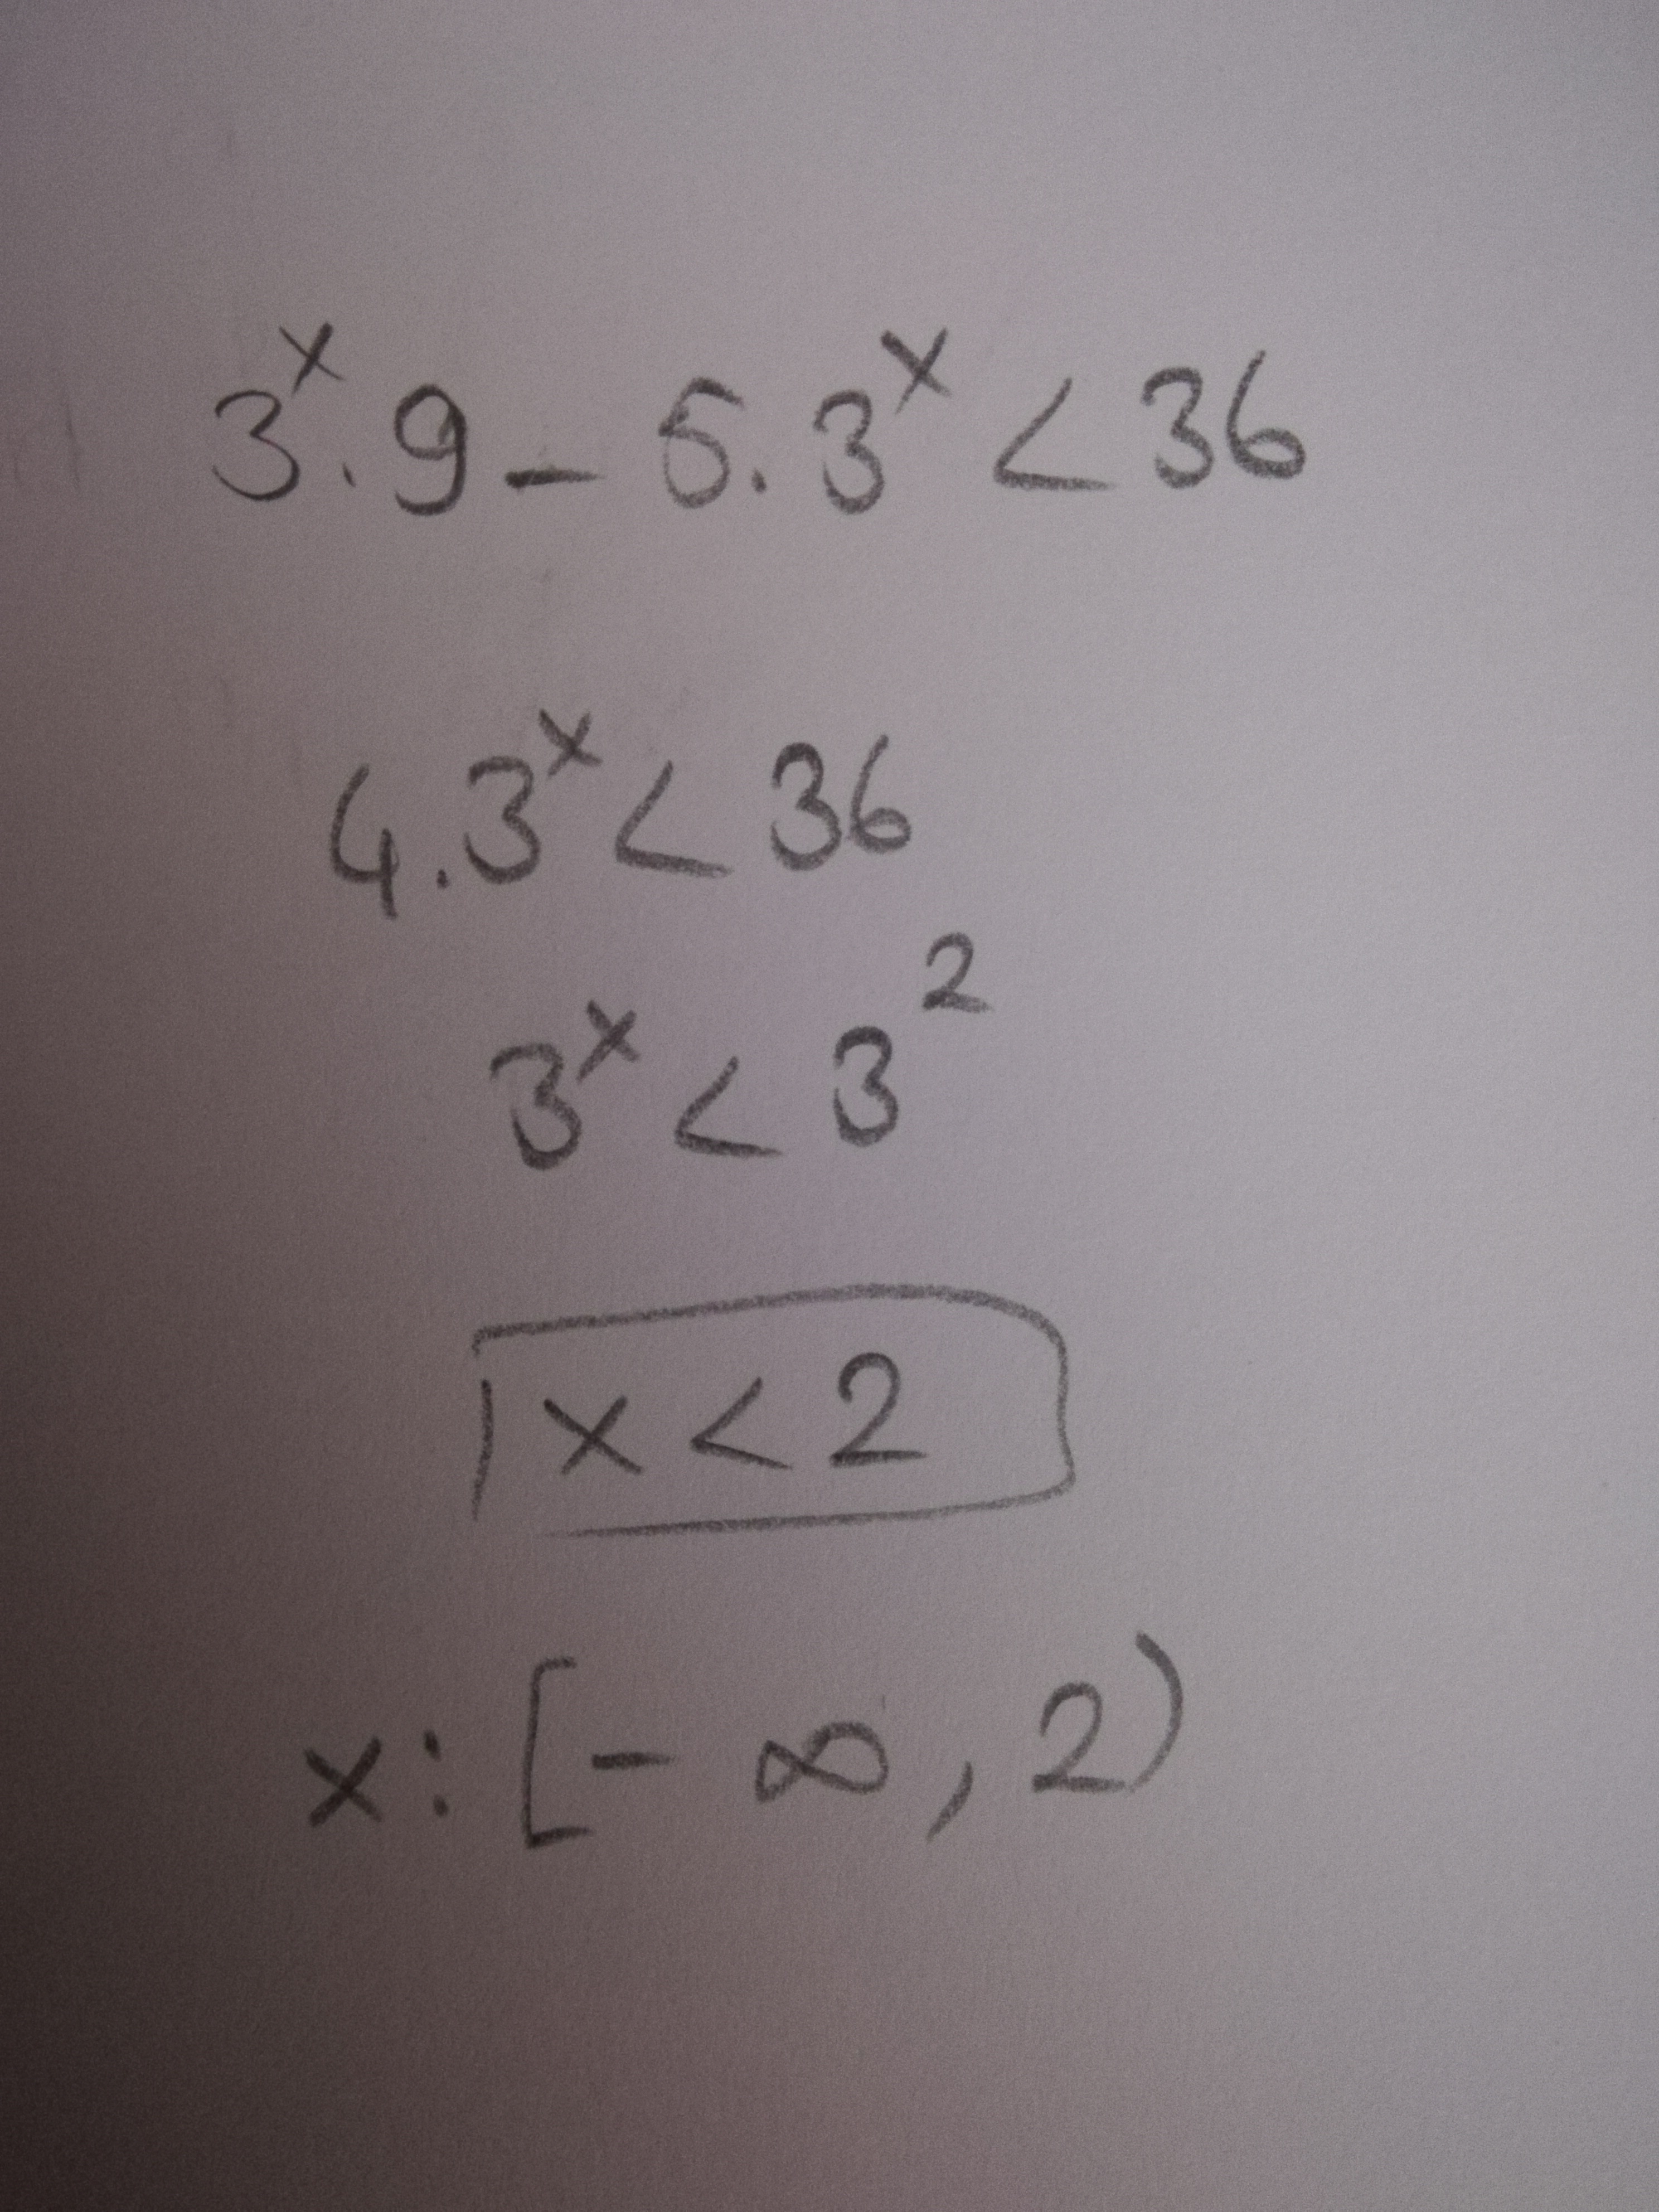 3ˣ.9 - 5.3ˣ < 36
4.3ˣ < 36
3ˣ < 3²
x < 2
x: [-∞, 2)